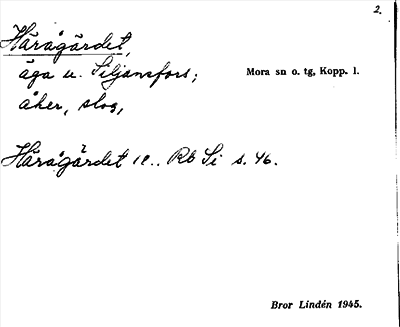 2.
Håragärdet,
äga u. Siljansfors;
Mora sn o. tg, Kopp. l.
åker, slog,
Håragärdet 18.. Rb Si s. 46.
Bror Lindén 1945.